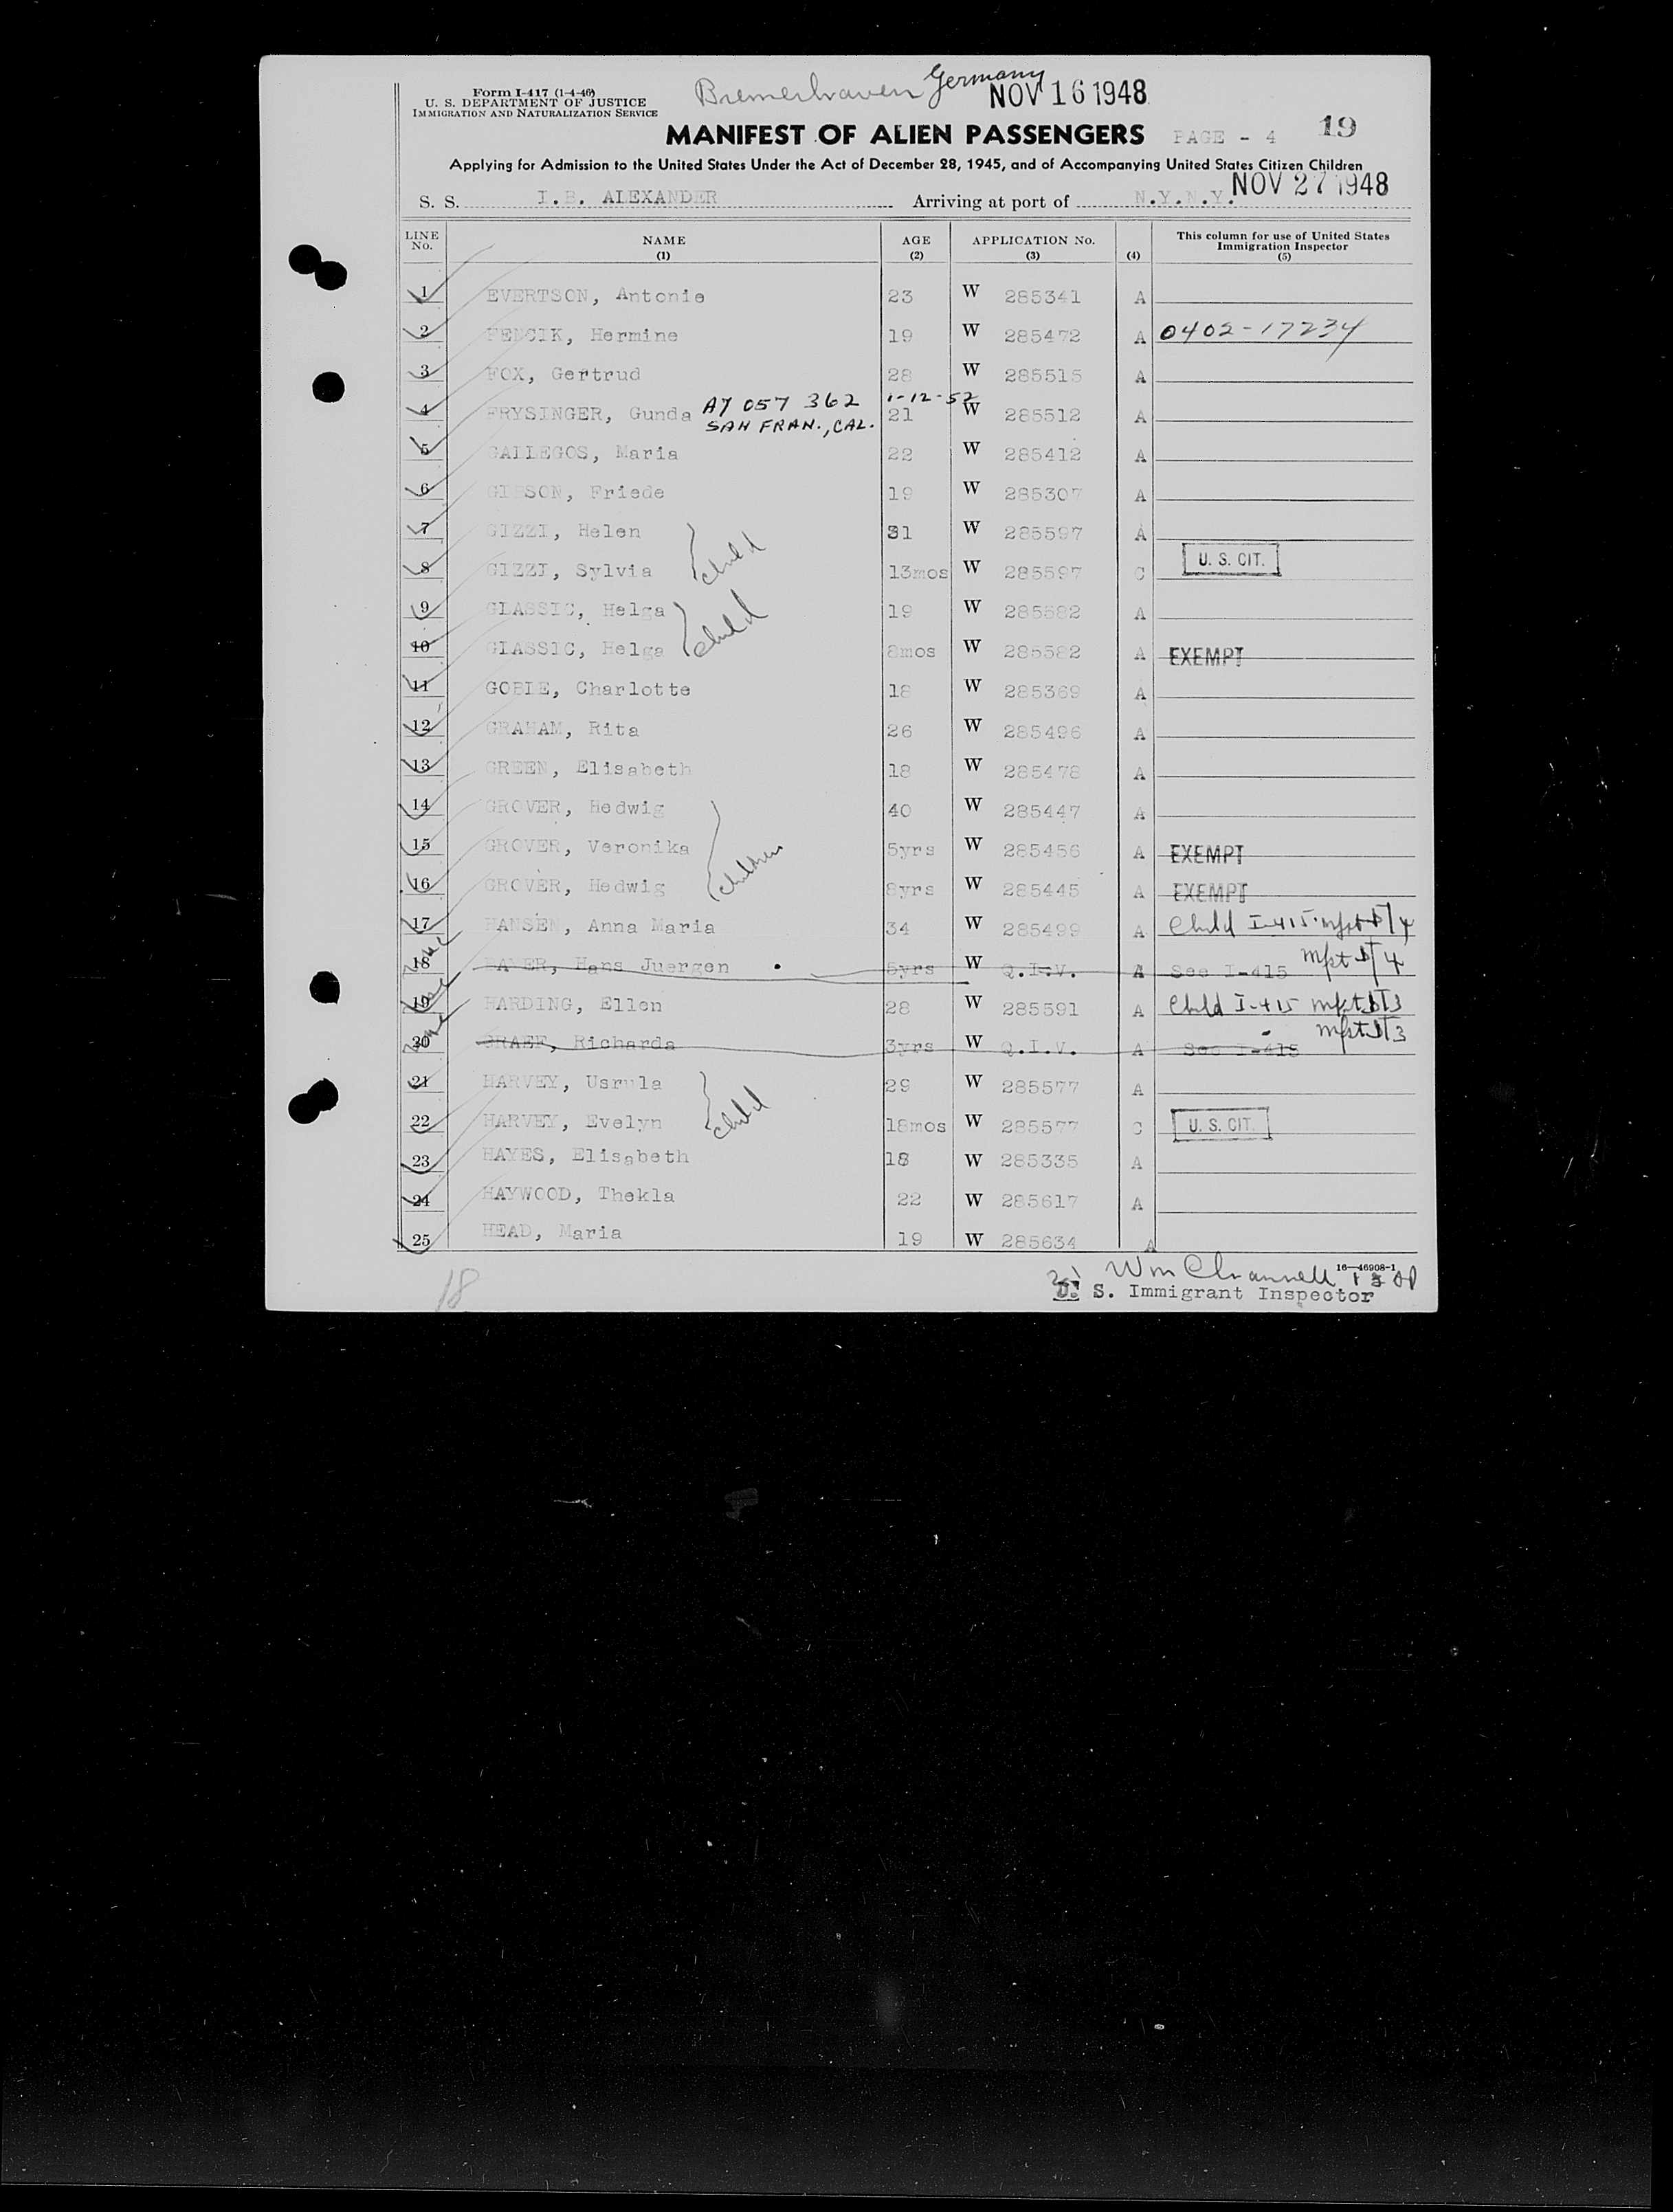 Bremerhaven Germany
NOV 16 1948
Form I-417 (1-4-46)
U. S. DEPARTMENT OF JUSTICE
IMMIGRATION AND NATURALIZATION SERVICE
MANIFEST OF ALIEN PASSENGERS PAGE - 4 19
Applying for Admission to the United States Under the Act of December 28, 1945, and of Accompanying United States Citizen Children
NOV 27 1948
S. S. I.B. ALEXANDER Arriving at port of N.Y.N.Y.
LINE No. NAME (1) AGE (2) APPLICATION No. (3) (4) This column for use of United States Immigration Inspector (5)
1 EVERTSON, Antonie 23 W 285341 A
2 FENCIK, Hermine 19 W 285472 A 0402-17234
3 FOX, Gertrud 28 W 285515 A
4 FRYSINGER, Gunda A7 057 362 1-12-52 21 W 285512 A
SAN FRAN., CAL.
5 GALLEGOS, Maria 22 W 285412 A
6 GIBSON, Friede 19 W 285307 A
7 GIZZI, Helen 31 W 285597 A
8 GIZZI, Sylvia child 13mos W 285597 C U. S. CIT.
9 GLASSIC, Helga 19 W 285582 A
10 GLASSIC, Helga child 8mos W 285582 A EXEMPT
11 GOBIE, Charlotte 18 W 285369 A
12 GRAHAM, Rita 26 W 285496 A
13 GREEN, Elisabeth 18 W 285478 A
14 GROVER, Hedwig 40 W 285447 A
15 GROVER, Veronika 5yrs W 285456 A EXEMPT
16 GROVER, Hedwig children 8yrs W 285445 A EXEMPT
17 HANSEN, Anna Maria 34 W 285499 A Child I-415 mfst 4
18 BAYER, Hans Juergen 5yrs W Q.I.V. A See I-415 mfst 4
19 HARDING, Ellen 28 W 285591 A Child I-415 mfst 3
20 GRAEF, Richarda 3yrs W Q.I.V. A See I-415 mfst 3
21 HARVEY, Usrula 29 W 285577 A
22 HARVEY, Evelyn child 18mos W 285577 C U. S. CIT.
23 HAYES, Elisabeth 18 W 285335 A
24 HAYWOOD, Thekla 22 W 285617 A
25 HEAD, Maria 19 W 285634 A
16—46908-1
18 Wm Channell
U. S. Immigrant Inspector